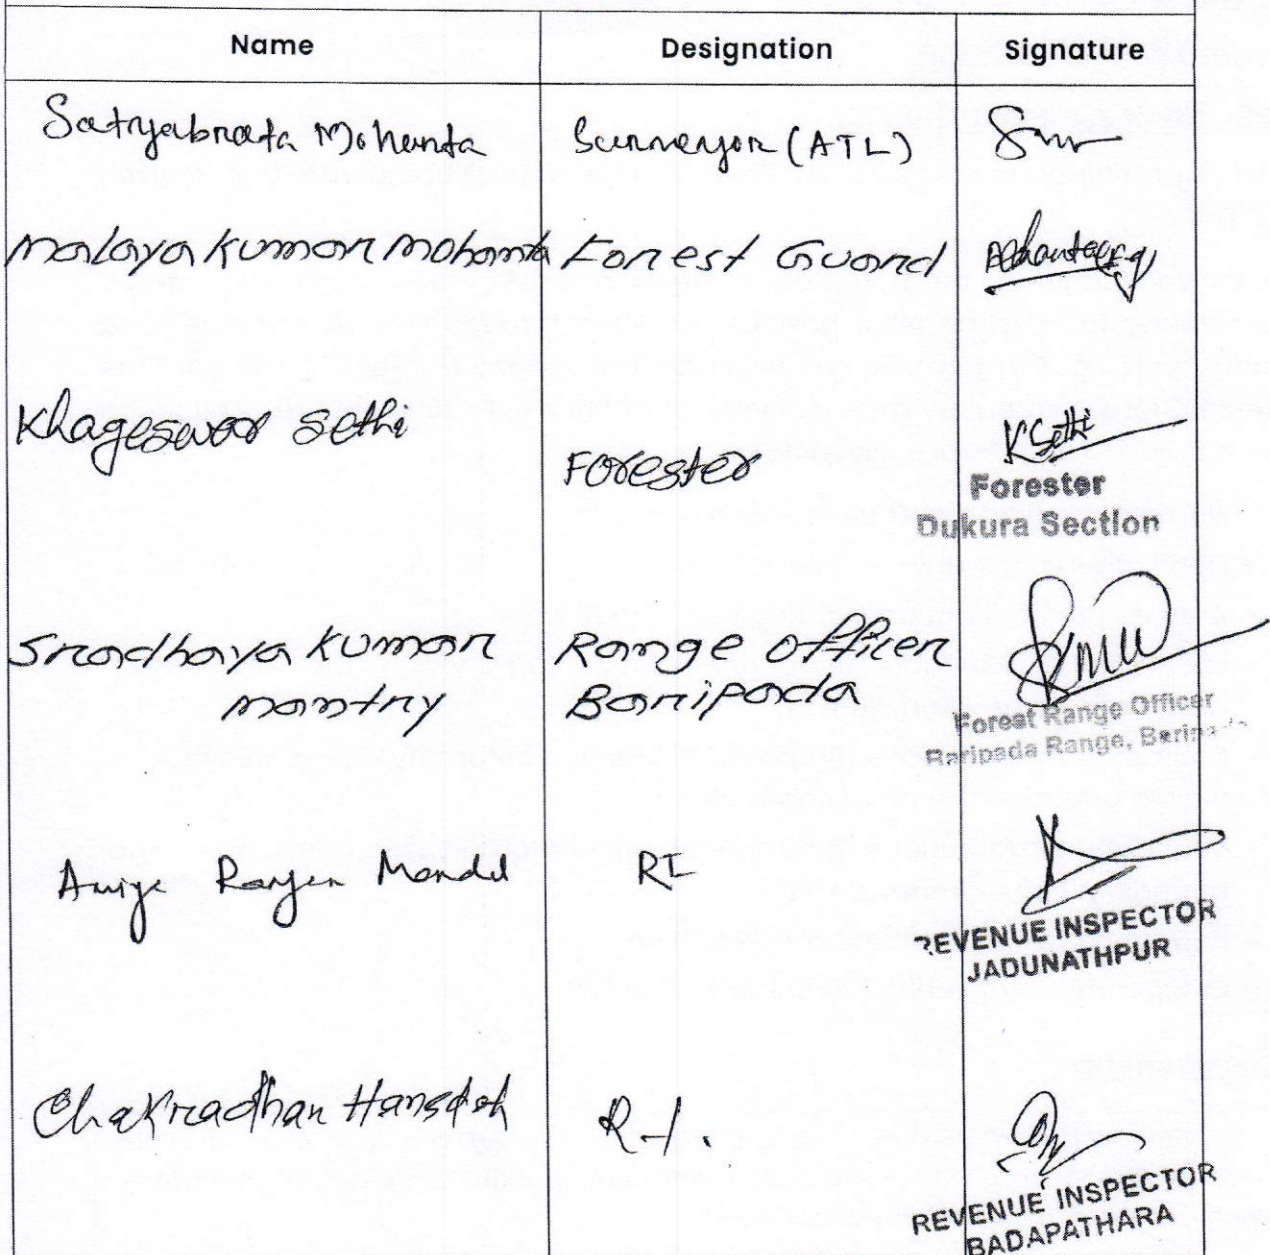 Name Designation Signature
Satyabrata Mohanta Surveyor (ATL)
Malaya Kumar Mohanta Forest Guard
Khageswar Sethi Forester KSethi
Forester
Dukura Section
Sradhaya Kumar Range Officer
Mantry Baripada
Forest Range Officer
Baripada Range, Baripada
Ranjan Mandal RI
REVENUE INSPECTOR
JADUNATHPUR
Chakradhar Hansdah R.I.
REVENUE INSPECTOR
BADAPATHARA